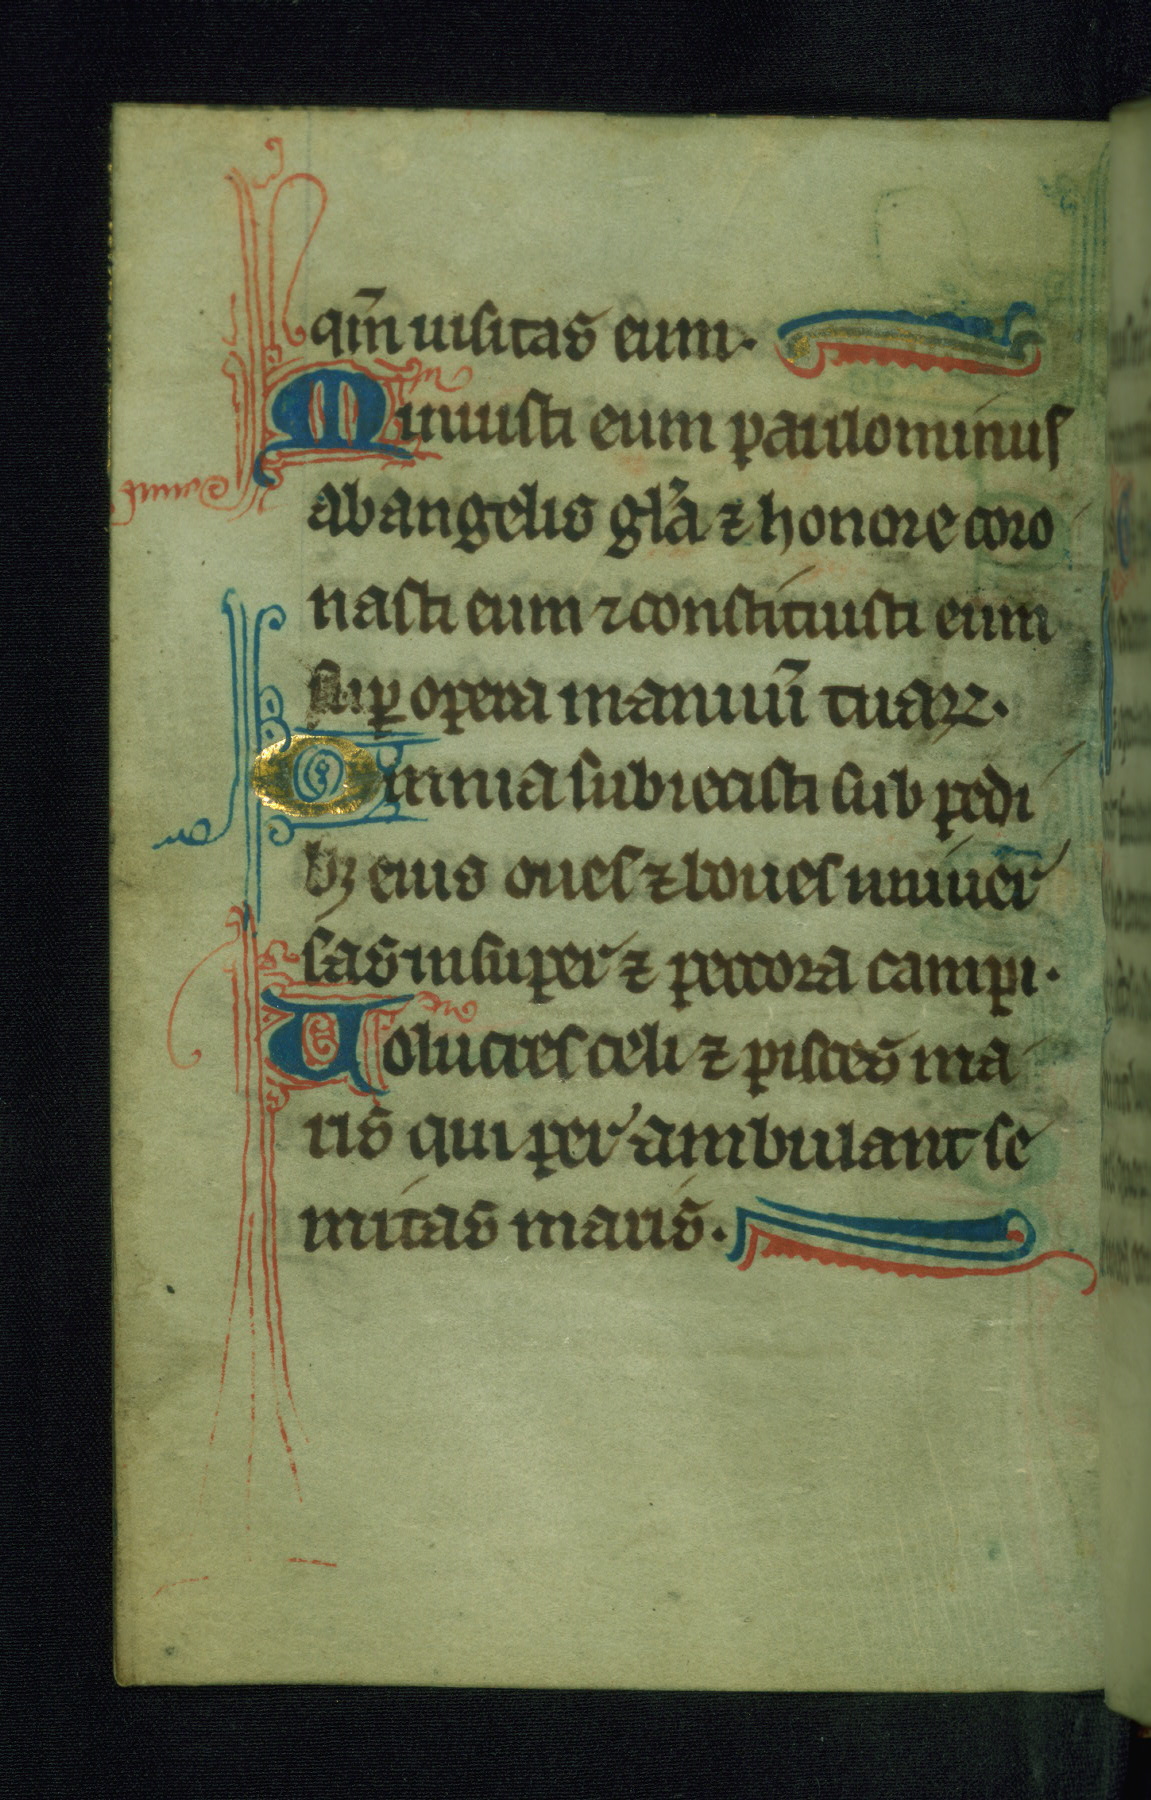 qm̄ uisitas eum.
Minuisti eum paulominus
ab angelis gl̃a ⁊ honore coro
nasti eum ⁊ constituisti eum
suꝑ opera manuū tuaꝝ.
Omnia subiecisti sub pedi
bꝫ eius oues ⁊ boues uniuer
sas insuper ⁊ peccora campi.
Uolucres celi ⁊ pisces ma
ris qui perambulant se
mitas maris.